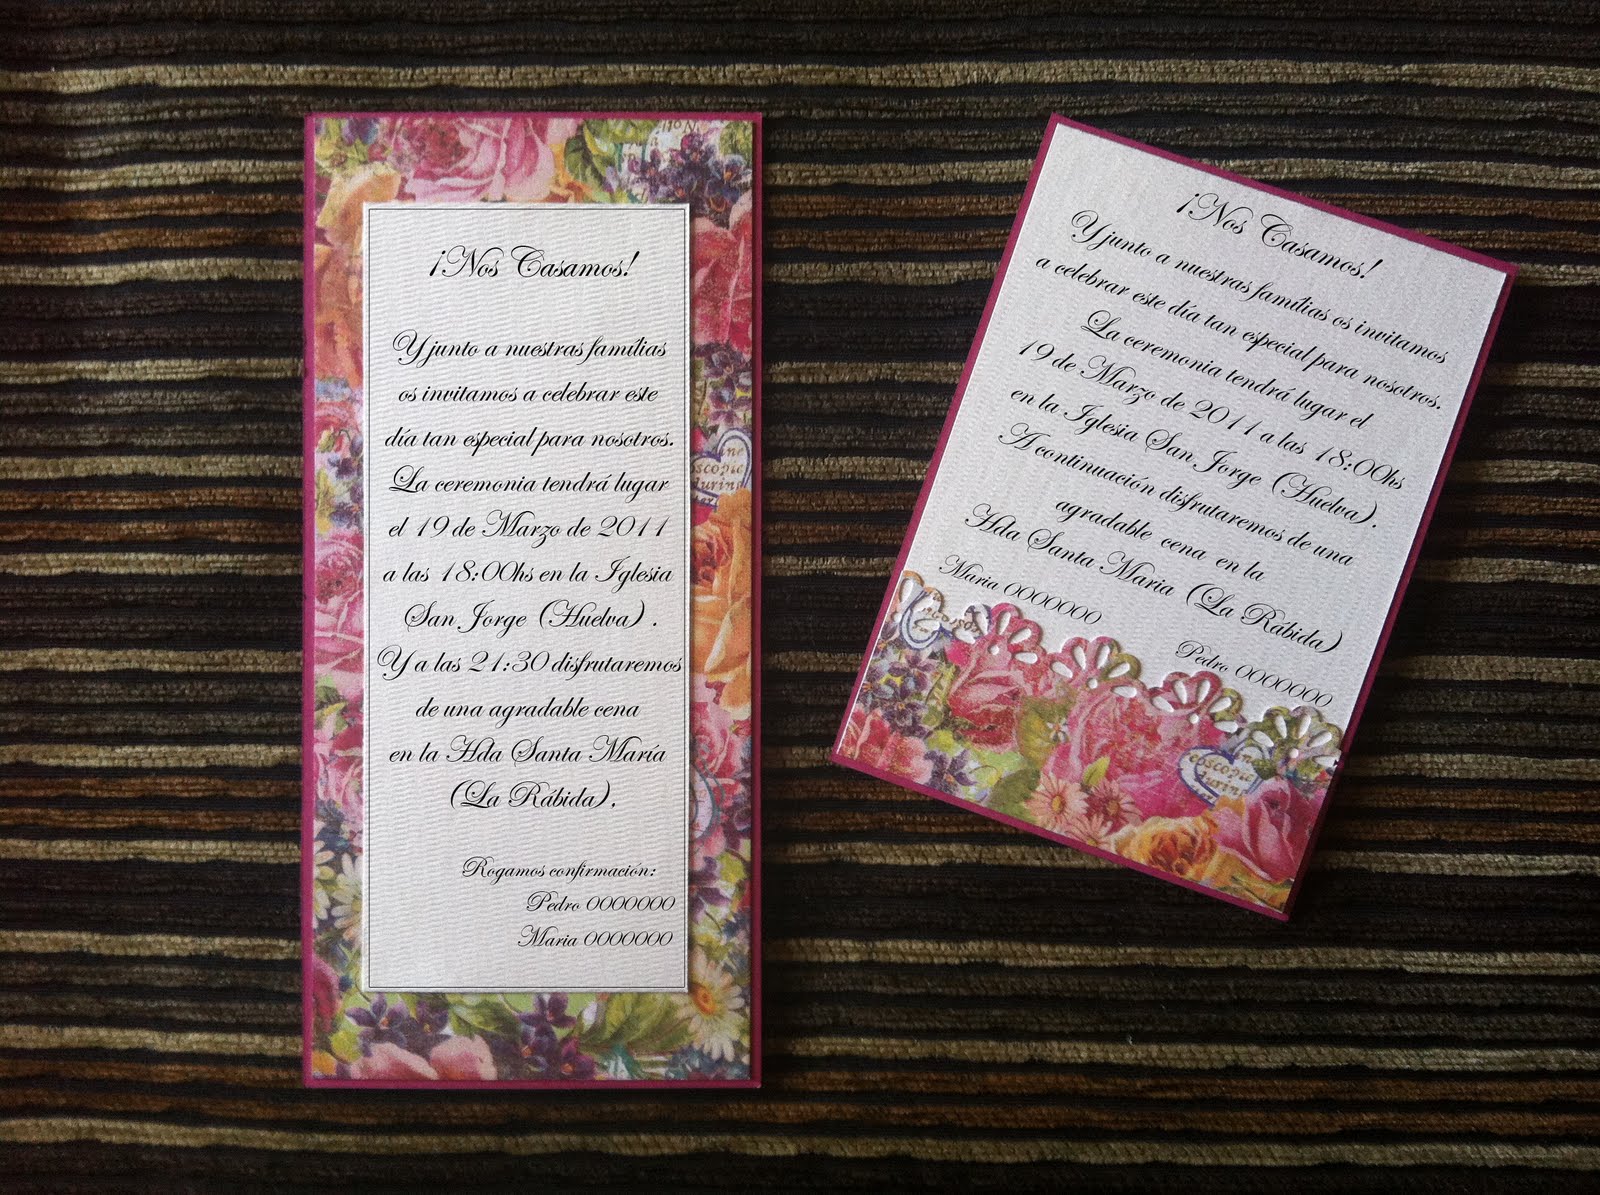 ¡Nos Casamos!
Y junto a nuestras famílias
os invitamos a celebrar este
día tan especial para nosotros.
La ceremonia tendrá lugar
el 19 de Marzo de 2011
a las 18:00hs en la Iglesia
San Jorge (Huelva) .
Y a las 21:30 disfrutaremos
de una agradable cena
en la Hda Santa María
(La Rábida).
Rogamos confirmación:
Pedro 0000000
Maria 0000000
¡Nos Casamos!
Y junto a nuestras famílias os invitamos
a celebrar este día tan especial para nosotros.
La ceremonia tendrá lugar el
19 de Marzo de 2011 a las 18:00hs
en la Iglesia San Jorge (Huelva).
A continuación disfrutaremos de una
agradable cena en la
Hda Santa Maria (La Rábida)
Maria 0000000
Pedro 0000000